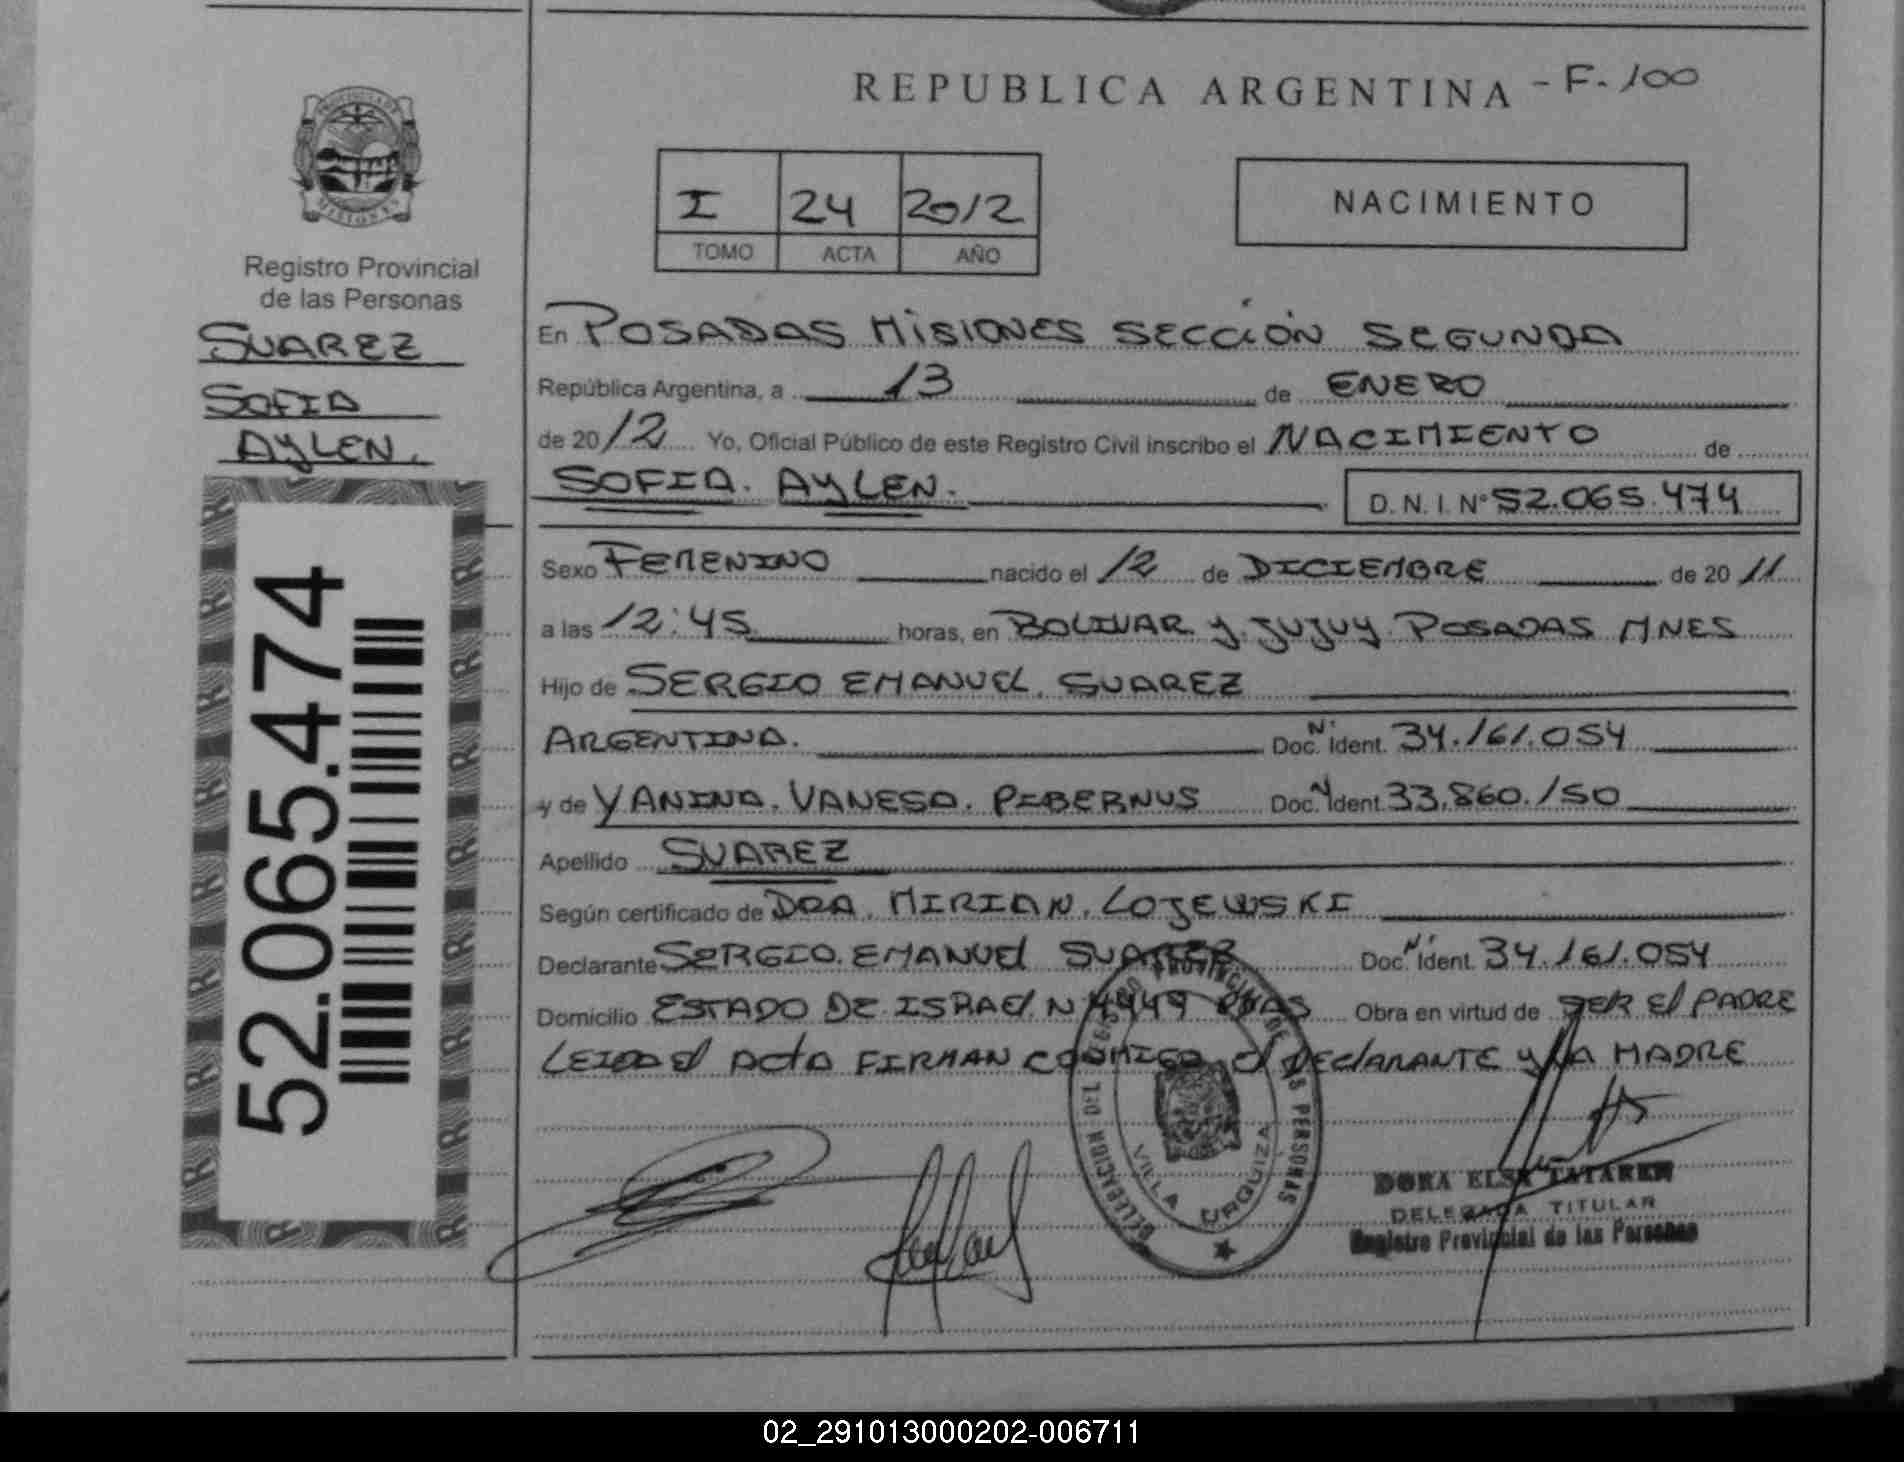 REPUBLICA ARGENTINA - F. 100
PROVINCIA DE
MISIONES
I 24 2012
TOMO ACTA AÑO
NACIMIENTO
Registro Provincial
de las Personas
SUAREZ
SOFIA
AYLEN.
52.065.474
En POSADAS MISIONES SECCIÓN SEGUNDA
República Argentina, a 13 de ENERO
de 2012 Yo, Oficial Público de este Registro Civil inscribo el NACIMIENTO de
SOFIA. AYLEN.
D. N. I. N° 52.065.474
Sexo FEMENINO nacido el 12 de DICIEMBRE de 2011
a las 12:45 horas, en BOLIVAR y JUJUY POSADAS MNES
Hijo de SERGIO EMANUEL. SUAREZ
ARGENTINA. Doc. N° Ident. 34.161.054
y de YANINA. VANESA. PIBERNUS Doc. N° Ident. 33.860.150
Apellido SUAREZ
Según certificado de DRA. MIRIAN. LOJEWSKI
Declarante SERGIO. EMANUEL SUAREZ Doc. N° Ident. 34.161.054
Domicilio ESTADO DE ISRAEL N 4449 PDAS Obra en virtud de SER El PADRE
LEIDA El ACTA FIRMAN CONMIGO El DEClARANTE y LA MADRE
DELEGACION DEL REGISTRO PROVINCIAL DE LAS PERSONAS
VILLA URQUIZA
DORA ELSA TATAREN
DELEGADA TITULAR
Registro Provincial de las Personas
02_291013000202-006711